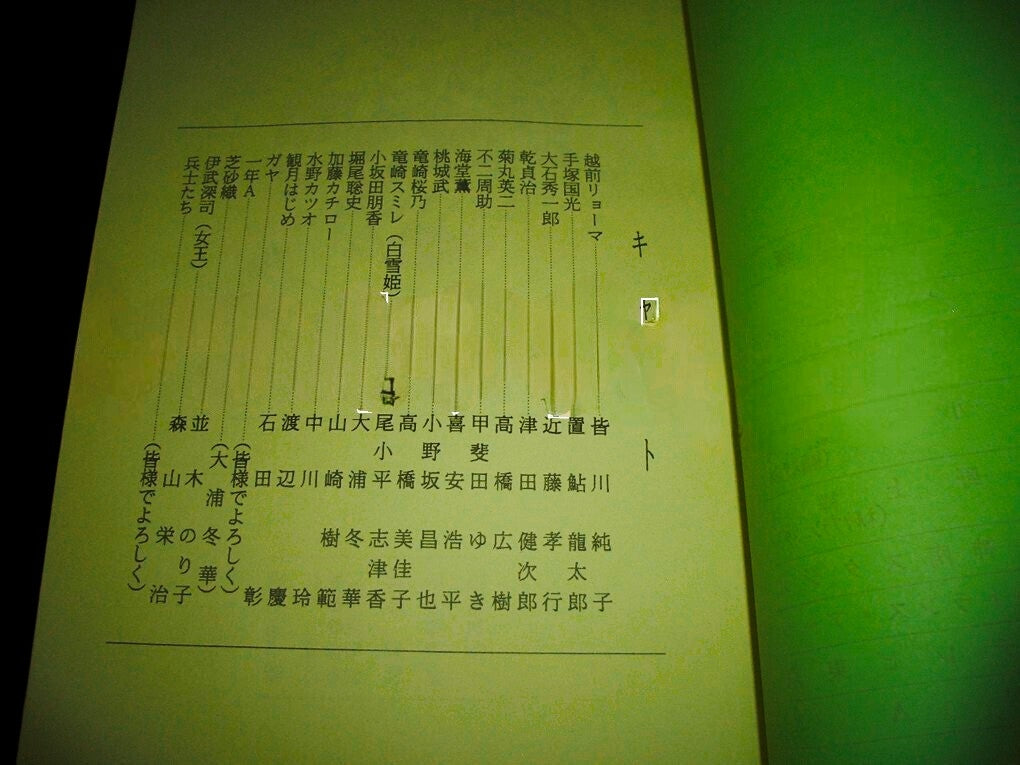 キャ ト
越前リョーマ………皆川純子
手塚国光………置鮎龍太郎
大石秀一郎………近藤孝行
乾貞治………津田健次郎
菊丸英二………高橋広樹
不二周助………甲斐田ゆき
海堂薫………喜安浩平
桃城武………小野坂昌也
竜崎桜乃………高橋美佳子
竜崎スミレ（白雪姫）………尾小平志津香
小坂田朋香………大浦冬華
堀尾聡史………山崎樹範
加藤カチロー………中川玲
水野カツオ………渡辺慶
観月はじめ………石田彰
ガヤ………（皆様でよろしく）
一年A………（大浦冬華）
芝砂織………並木のり子
伊武深司（女王）………森山栄治
兵士たち………（皆様でよろしく）